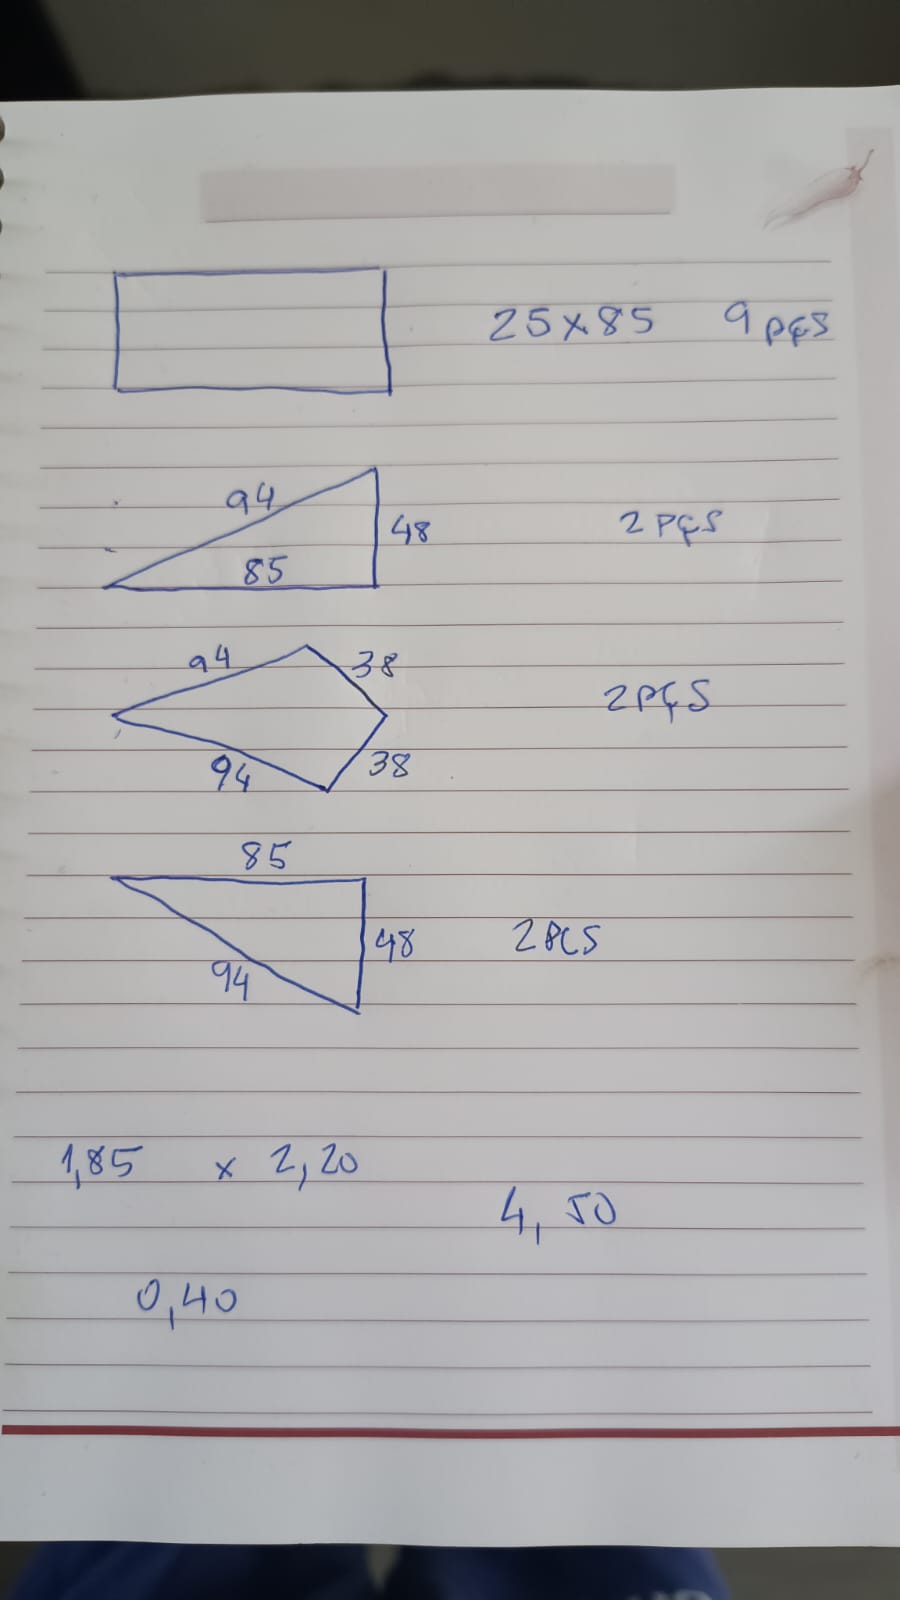 25x85 9 pçs
94
48
85
2 PÇS
94
38
2 PÇS
94
38
85
48
2 PCS
94
1,85 x 2,20
4,50
0,40